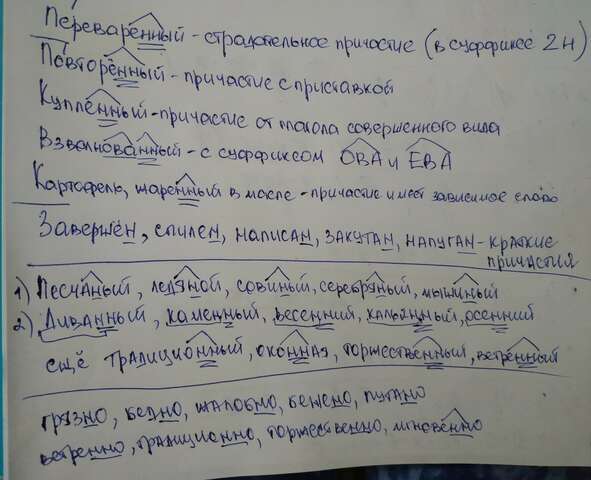 Переваренный - страдательное причастие (в суффиксе 2н)
Повторённый - причастие с приставкой
Купленный - причастие от глагола совершенного вида
Взволнованный - с суффиксом ОВА и ЕВА
Картофель, жаренный в масле - причастие имеет зависимое слово
Завершён, спилен, написан, закутан, напуган - краткие
причастия
1) Песчаный, ледяной, совиный, серебряный, мышиный
2) Диванный, каменный, весенний, кальянный, осенний
ещё традиционный, оконная, торжественный, ветренный
грязно, бедно, жалобно, бешено, путано
ветренно, традиционно, торжественно, мгновенно